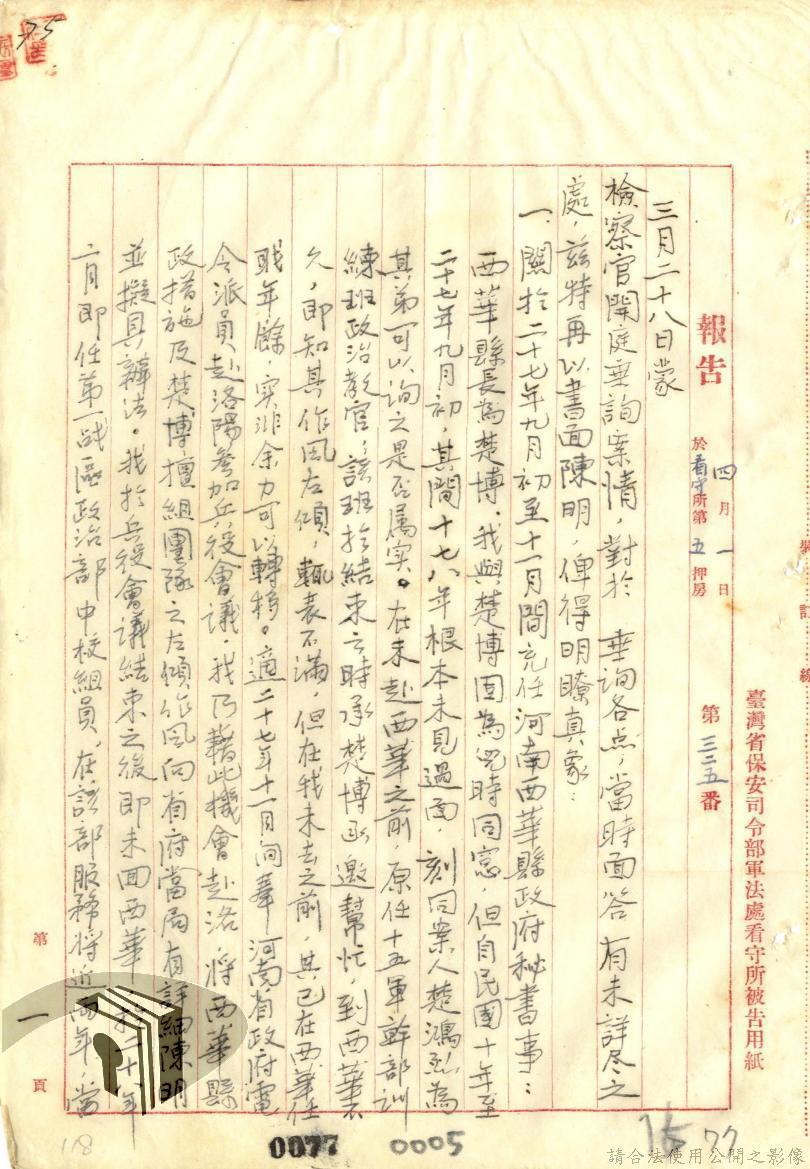 臺灣省保安司令部軍法處看守所被告用紙
裝訂線
報告
四月一日
於看守所第五押房
第三二五番
三月二十八日蒙
檢察官開庭垂詢案情，對於 垂詢各点，當時面答 有未詳尽之
處，茲特再以書面陳明，俾得明瞭真象：
一、關於二十七年九月初至十一月間充任河南西華縣政府秘書事：
西華縣長為楚博，我與楚博固為兒時同窓，但自民國十年至
二十七年九月初，其間十七八年根本未見過面，刻同案人楚鴻烈為
其弟可以詢之是否属实。在未赴西華之前，原任十五軍幹部訓
練班政治教官，該班於結束之時承楚博函邀幫忙，到西華不
久，即知其作風左傾，輒表不滿，但在我未去之前，其已在西華任
職年餘，实非余力可以轉移。適二十七年十一月间奉 河南省政府電
令派員赴洛陽參加兵役會議，我乃藉此機會赴洛，將西華縣
政措施及楚博擅組團隊之左傾作風向省府當局有詳細陳明
並擬具辦法。我於兵役會議結束之後即未回西華，於二十八年
二月即任第一战區政治部中校組員，在該部服務將近兩年，當
第一頁
75
118
0077
0005
75
77
請合法使用公開之影像